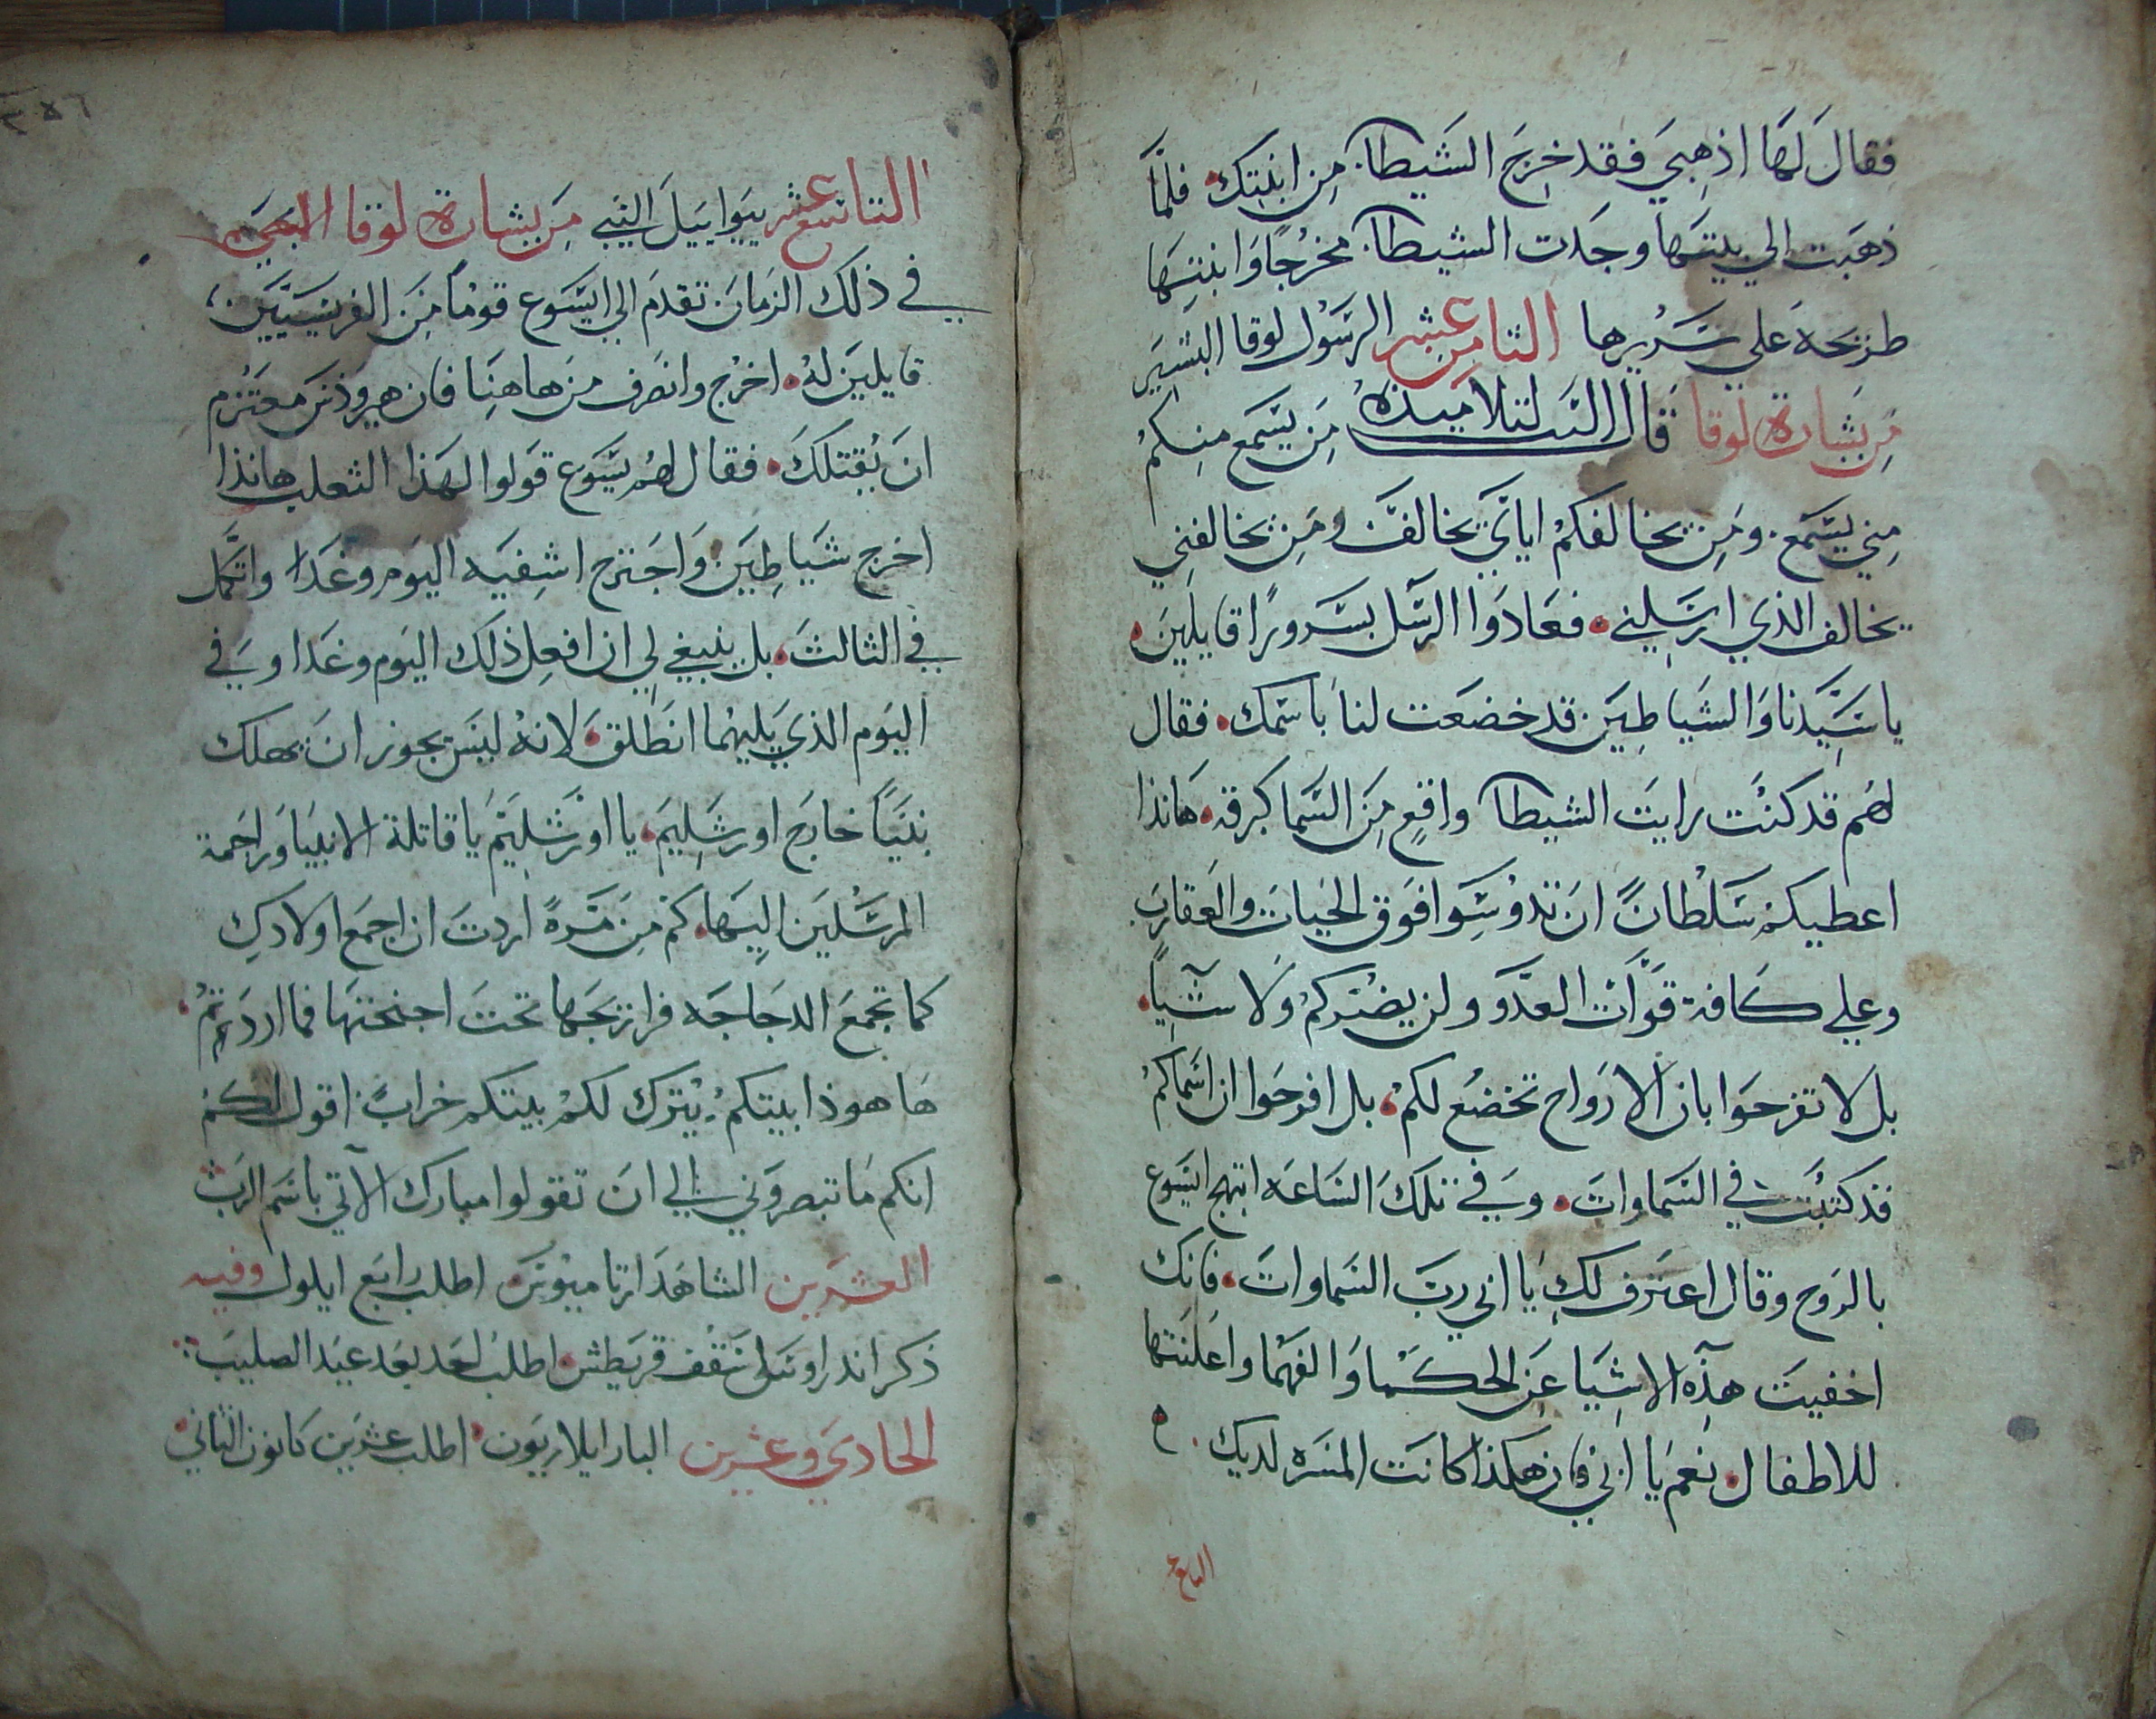 فقال لها اذهبي فقد خرج الشيطان من ابنتك. فلما
ذهبت الي بيتها وجدت الشيطان مخرجًا وابنتها
طريحة علي سريرها الثامن عشر الرسول لوقا البشير
من بشارة لوقا قال الرب لتلاميذه من يسمع منكم
مني يسمع. ومن يخالفكم اياي يخالف ومن يخالفني
يخالف الذي ارسلني. فعادوا الرسل بسرورًا قايلين.
يا سيدنا والشياطين قد خضعت لنا باسمك. فقال
لهم قد كنت رايت الشيطان واقع من السما كبرقه. هانذا
اعطيكم سلطانًا ان تدوسوا فوق الحيات والعقارب
وعلي كافة قوات العدو ولن يضركم ولا شيًا.
بل لا تفرحوا بان الارواح تخضع لكم. بل افرحوا ان اسماكم
قد كتبت في السماوات. وفي تلك الساعه ابتهج ايسوع
بالروح وقال اعترف لك يا ابي رب السماوات. فانك
اخفيت هذه الاشيا عن الحكما والفهما واعلنتها
للاطفال. نعم يا ابي فان هكذا كانت المسره لديك.
التاسع
٣٥٦
التاسع عشر يوايل النبي من بشارة لوقا البشير
في ذلك الزمان تقدم الي ايسوع قومًا من الفريسيين
قايلين له. اخرج وانصرف من هاهنا فان هيرودس معتزم
ان يقتلك. فقال لهم يسوع قولوا لهذا الثعلب هانذا
اخرج شياطين واجترح اشفيه اليوم وغدا واتكمل
في الثالث. بل ينبغي لي ان افعل ذلك اليوم وغدا وفي
اليوم الذي يليهما انطلق. لانه ليس يجوز ان يهلك
نبيًا خارج اورشليم. يا اورشليم يا قاتلة الانبيا وراجمة
المرسلين اليها. كم من مرةً اردت ان اجمع اولادك
كما تجمع الدجاجه فراريجها تحت اجنحتها فما اردتم.
ها هوذا بيتكم يترك لكم بيتكم خرابً اقول لكم
انكم ما تبصروني الي ان تقولوا مبارك الآتي باسم الرب
العشرين الشاهد ارتاميوس اطلب رابع ايلول وفيه
ذكر اندراوس اسقف قريطش اطلب احد بعد عيد الصليب
الحادي وعشرين البار ايلاريون. اطلب عشرين كانون الثاني